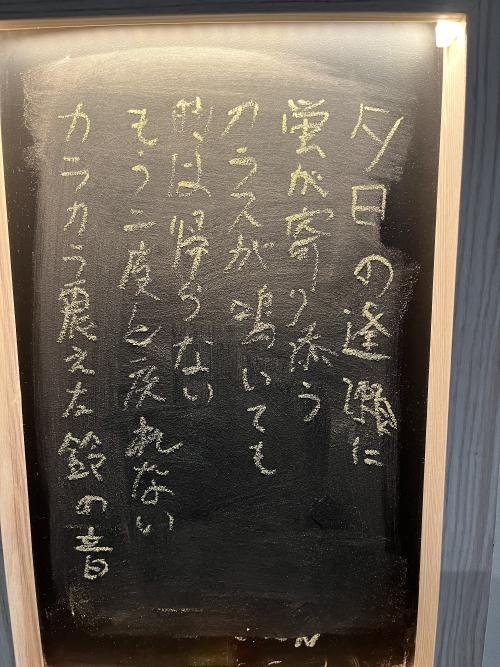 夕日の逢瀬に
蛍が寄り添う
カラスが鳴いても
時は帰らない
もう二度と戻れない
カラカラ震えた鈴の音